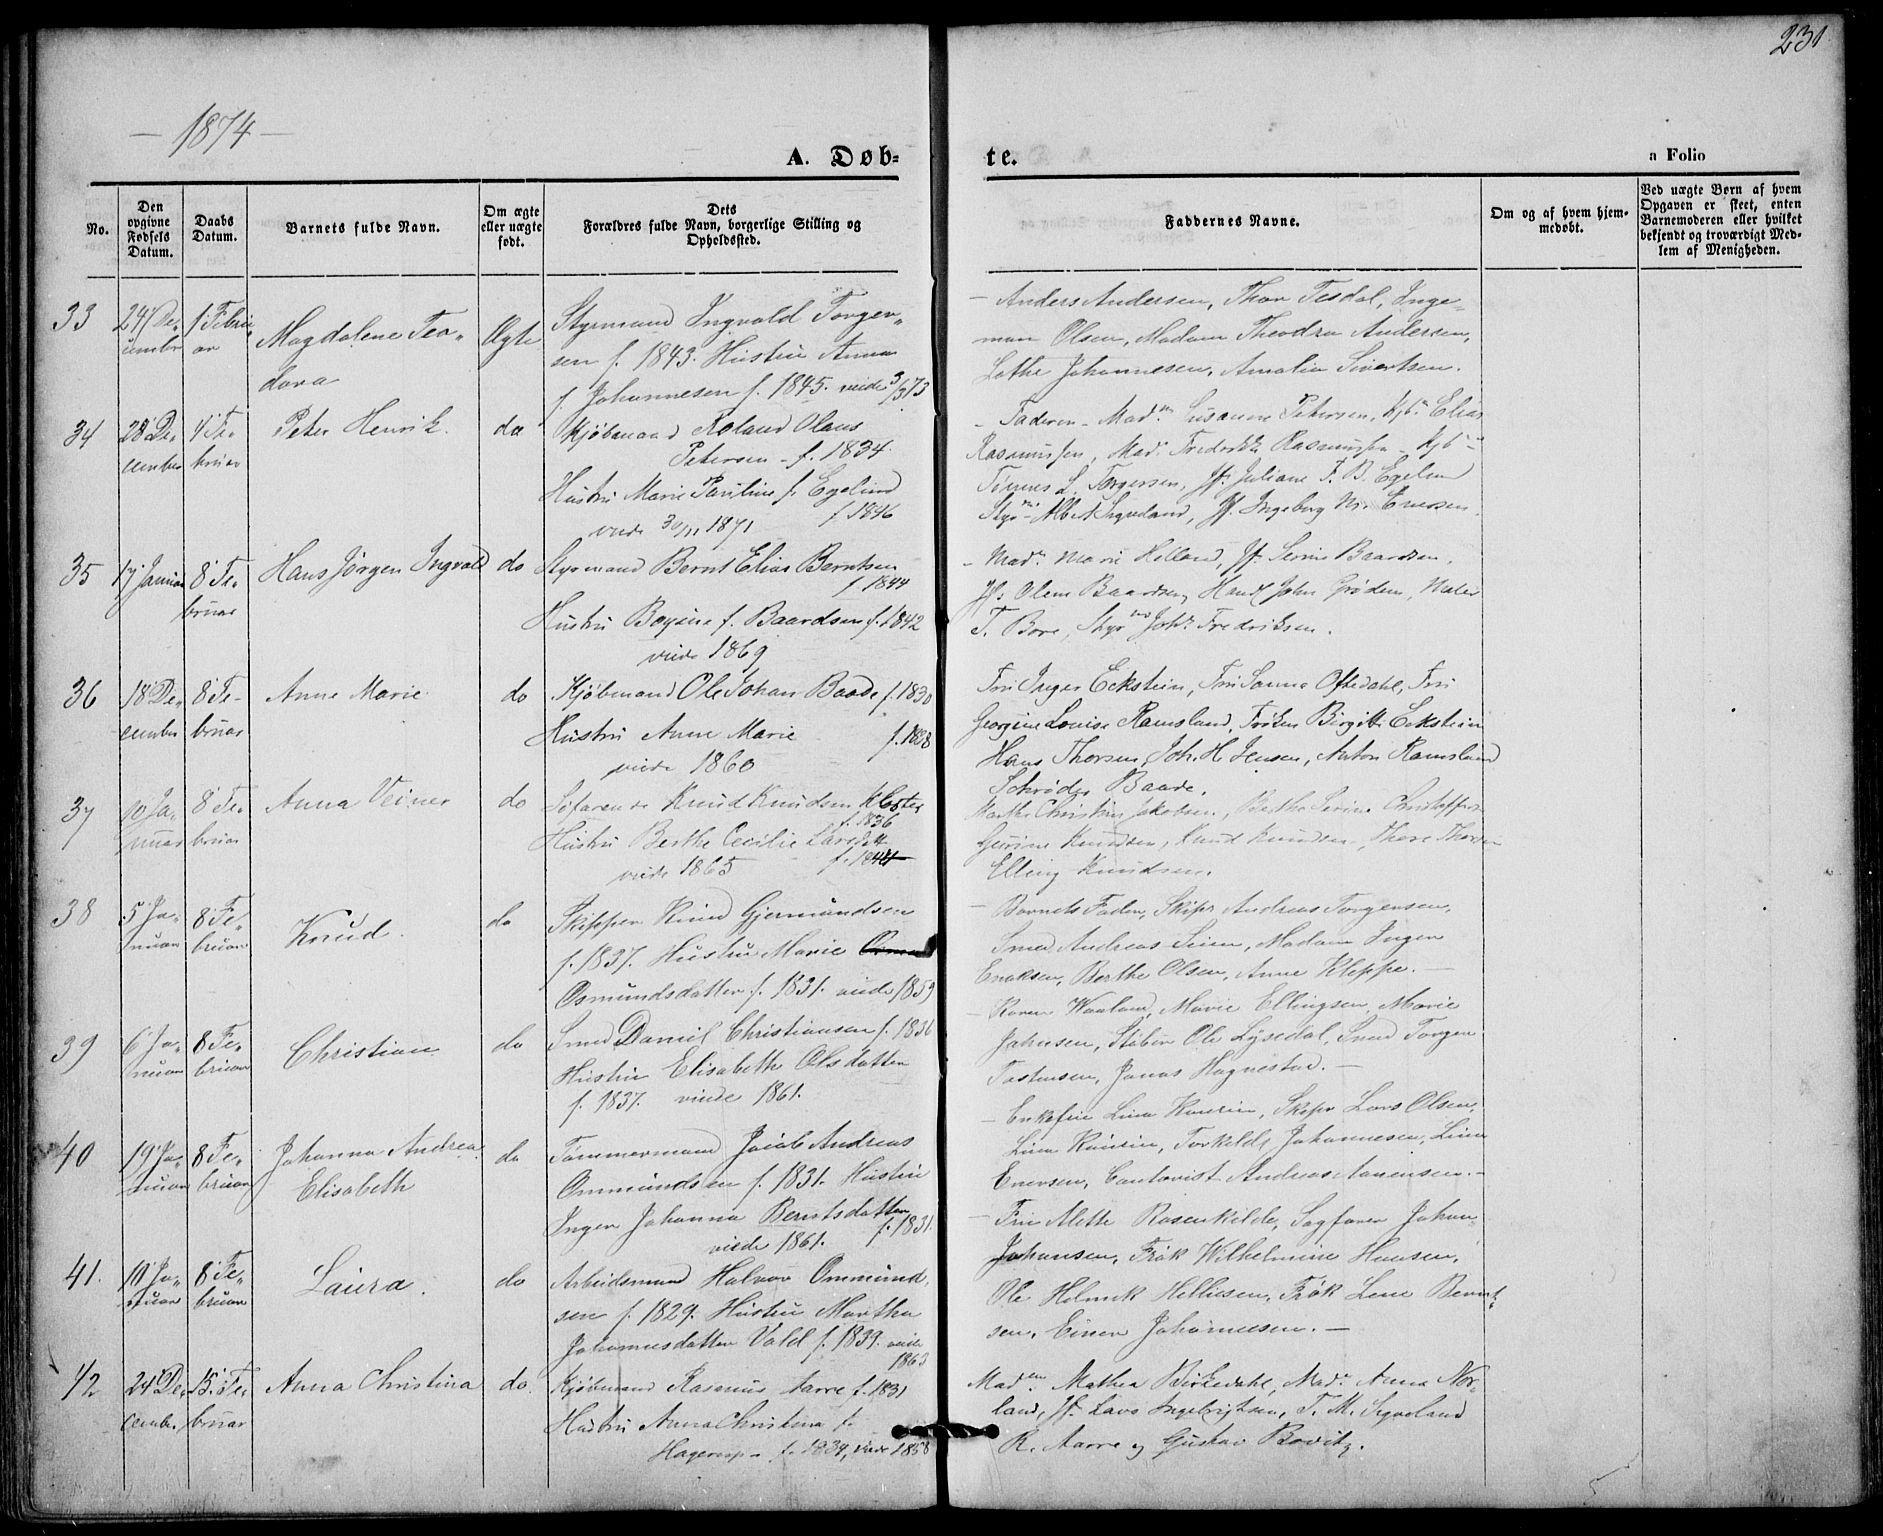 231
— 1874 —
A. Døb-
te.
a Folio
No.
Den opgivne Fødsels Datum.
Daabs Datum.
Barnets fulde Navn.
Om ægte eller uægte født.
Dets Forældres fulde Navn, borgerlige Stilling og Opholdssted.
Faddernes Navne.
Om og af hvem hjemmedøbt.
Ved uægte Børn af hvem Opgaven er skeet, enten Barnemoderen eller hvilket bekjendt og troværdigt Medlem af Menigheden.
33
24 De-
cember
1 Febru-
ar
Magdalene Teo-
dora
Ægte
Styrmand Ingvald Torger-
sen f. 1843. Hustru Anna
f. Johannesen f. 1845. viede 3/3 73
— Anders Andersen, Thor Tesdal, Inge-
man Olsen, Madam Theodra Andersen,
Lothe Johannesen, Amalia Sivertsen.
34
28 De-
cember
1 Fe-
bruar
Peter Henrik.
do
Kjøbmand Roland Olaus
Petersen – f. 1834.
Hustru Marie Pauline f. Egelind
f. 1846
viede 30/11 1871
– Faderen – Mad. Susanne Petersen, Kjb. Elias
Rasmussen, Mad. Frederikke Rasmussen – Kjb.
Tønnes S. Torgersen, Jf. Juliane F. B. Egelin
Styr. Albert Sigveland, Jf. Ingeborg M. Enersen.
35
17 Januar
8 Fe-
bruar
Hans Jørgen Ingvald
do
Styrmand Bernt Elias Berntsen
f. 1844
Hustru Bagine f. Baardsen f. 1842
viede 1869
– Mad. Marie Helland, Jf. Serine Baardsen,
Jf. Olene Baardsen, Handl. John Grødem, Maler
T. Bore, Styr Joh. Fredriksen.
36
18 De-
cember
8 Fe-
bruar
Anne Marie
do
Kjøbmand Ole Johan Baade f. 1830
Hustru Anne Marie
viede 1860
Fru Inger Eckstein, Fru Sanna Oftedahl, Fru
Georgine Louise Ramsland, Frøken Birgitte Eckstein
Hans Thorsen, Joh. H. Jensen, Anton Ramsland
Schrøder Baade.
37
10 Ja-
nuar
8 Fe-
bruar
Anna Veiner
do
Søfarende Knud Knudsen Kloster
f. 1836
Hustru Berthe Cecilie Larsdtt
f. 1844
viede 1865
Marthe Christine Jakobsen, Berthe Serine Christoffersen
Gurine Knudsen, Knud Knudsen, Thore Thorsen
Elling Knudsen.
38
5 Ja-
nuar
8 Fe-
bruar
Knud.
do
Skipper Knud Gjermundsen
f. 1837. Hustru Marie
Osmundsdatter f. 1831. viede 1859
— Barnets Fader, Skipr Andreas Torgersen,
Smed Andreas Seien, Madam Inger
Enoksen, Berthe Olsen, Anne Kleppe. —
39
6 Ja-
nuar
8 Fe-
bruar
Christian
do
Smed Daniel Christiansen f. 1836
Hustru Elisabeth Olsdatter
f. 1837. viede 1861.
— Karen Waaland, Marie Ellingsen, Marie
Johnsen, Støber Ole Lysedal, Smed Torger
Tostensen, Jonas Hognestad. —
40
19 Ja-
nuar
8 Fe-
bruar
Johanna Andrea
Elisabeth
do
Tømmermand Jacob Andreas
Ommundsen f. 1831. Hustru
Inger Johanna Berntsdatter
f. 1831.
viede 1861.
— Enkefru Lina Kanrin, Skipr Lars Olsen,
Lina Kanrin, Torkilde Johannesen, Lina
Enersen, Contorist Andreas Aanensen. —
41.
10 Ja-
nuar
8 Fe-
bruar
Laura.
do
Arbeidsmand Halvor Ommund-
sen f. 1829. Hustru Martha
Johannesdatter Vold f. 1839. viede
1863
— Fru Alette Rosenkilde, Sagfører Johan
Johansen, Frøk Wilhelmine Hansen,
Ole Helmik Helliesen, Frøk Lene Bernt-
sen, Einer Johannesen. —
42
24 De-
cember
15 Fe-
bruar
Anna Christina
do.
Kjøbmand Rasmus Aarre f. 1831
Hustru Anna Christina f.
Hagerup – f. 1834, viede 1858
Mad. Mathea Birkedahl, Mad. Anna Nor-
land, Jf. Lava Ingebrigtsen, T. M. Sigveland
R. Aarre og Gustav Bovitz.